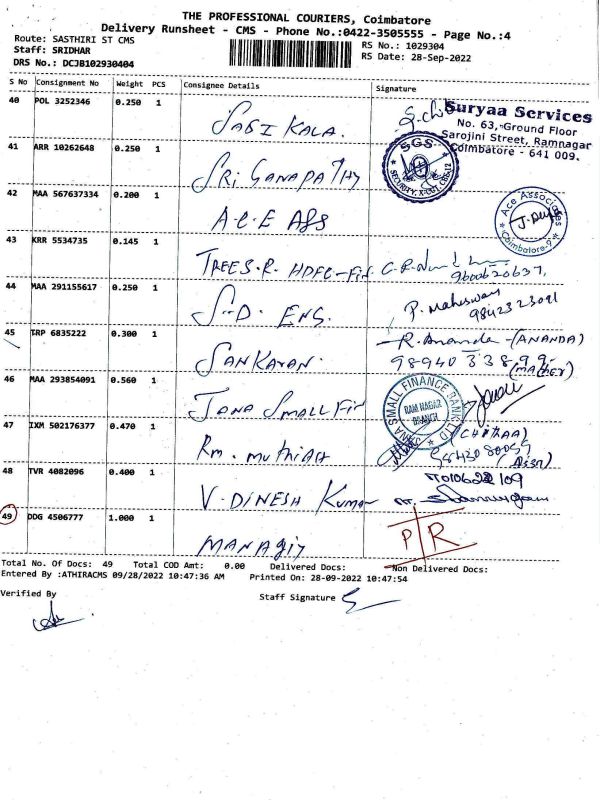 THE PROFESSIONAL COURIERS, Coimbatore
Delivery Runsheet - CMS - Phone No.:0422-3505555 - Page No.:4
Route: SASTHIRI ST CMS
Staff: SRIDHAR
DRS No.: DCJB102930404
RS No.: 1029304
RS Date: 28-Sep-2022
S No Consignment No Weight PCS Consignee Details Signature
40 POL 3252346 0.250 1 SASI KALA.
Suryaa Services
No. 63, Ground Floor
Sarojini Street, Ramnagar
Coimbatore - 641 009.
41 ARR 10262648 0.250 1 SRI GANAPATHY
SGS
42 MAA 567637334 0.200 1 A.C.E ASS
Ace Associates
Coimbatore-9
43 KRR 5534735 0.145 1 TREES.R. HDFC-Fin
9600620637,
44 MAA 291155617 0.250 1 S.D. ENG.
P. Maheswari
9842323091
45 TRP 6835222 0.300 1 SANKARAN.
R. Ananda - (ANANDA)
9894033899
(MATHER)
46 MAA 293854091 0.560 1 JANA SMALL Fin
JANA SMALL FINANCE BANK LTD
RAM NAGAR
BRANCH
47 IXM 502176377 0.470 1 Rm. muthiah
(CHITRAA)
9843080059
48 TVR 4082096 0.400 1 V. DINESH Kumar
49 DDG 4506777 1.000 1
P R
Total No. Of Docs: 49 Total COD Amt: 0.00 Delivered Docs: Non Delivered Docs:
Entered By :ATHIRACMS 09/28/2022 10:47:36 AM Printed On: 28-09-2022 10:47:54
Verified By
Staff Signature